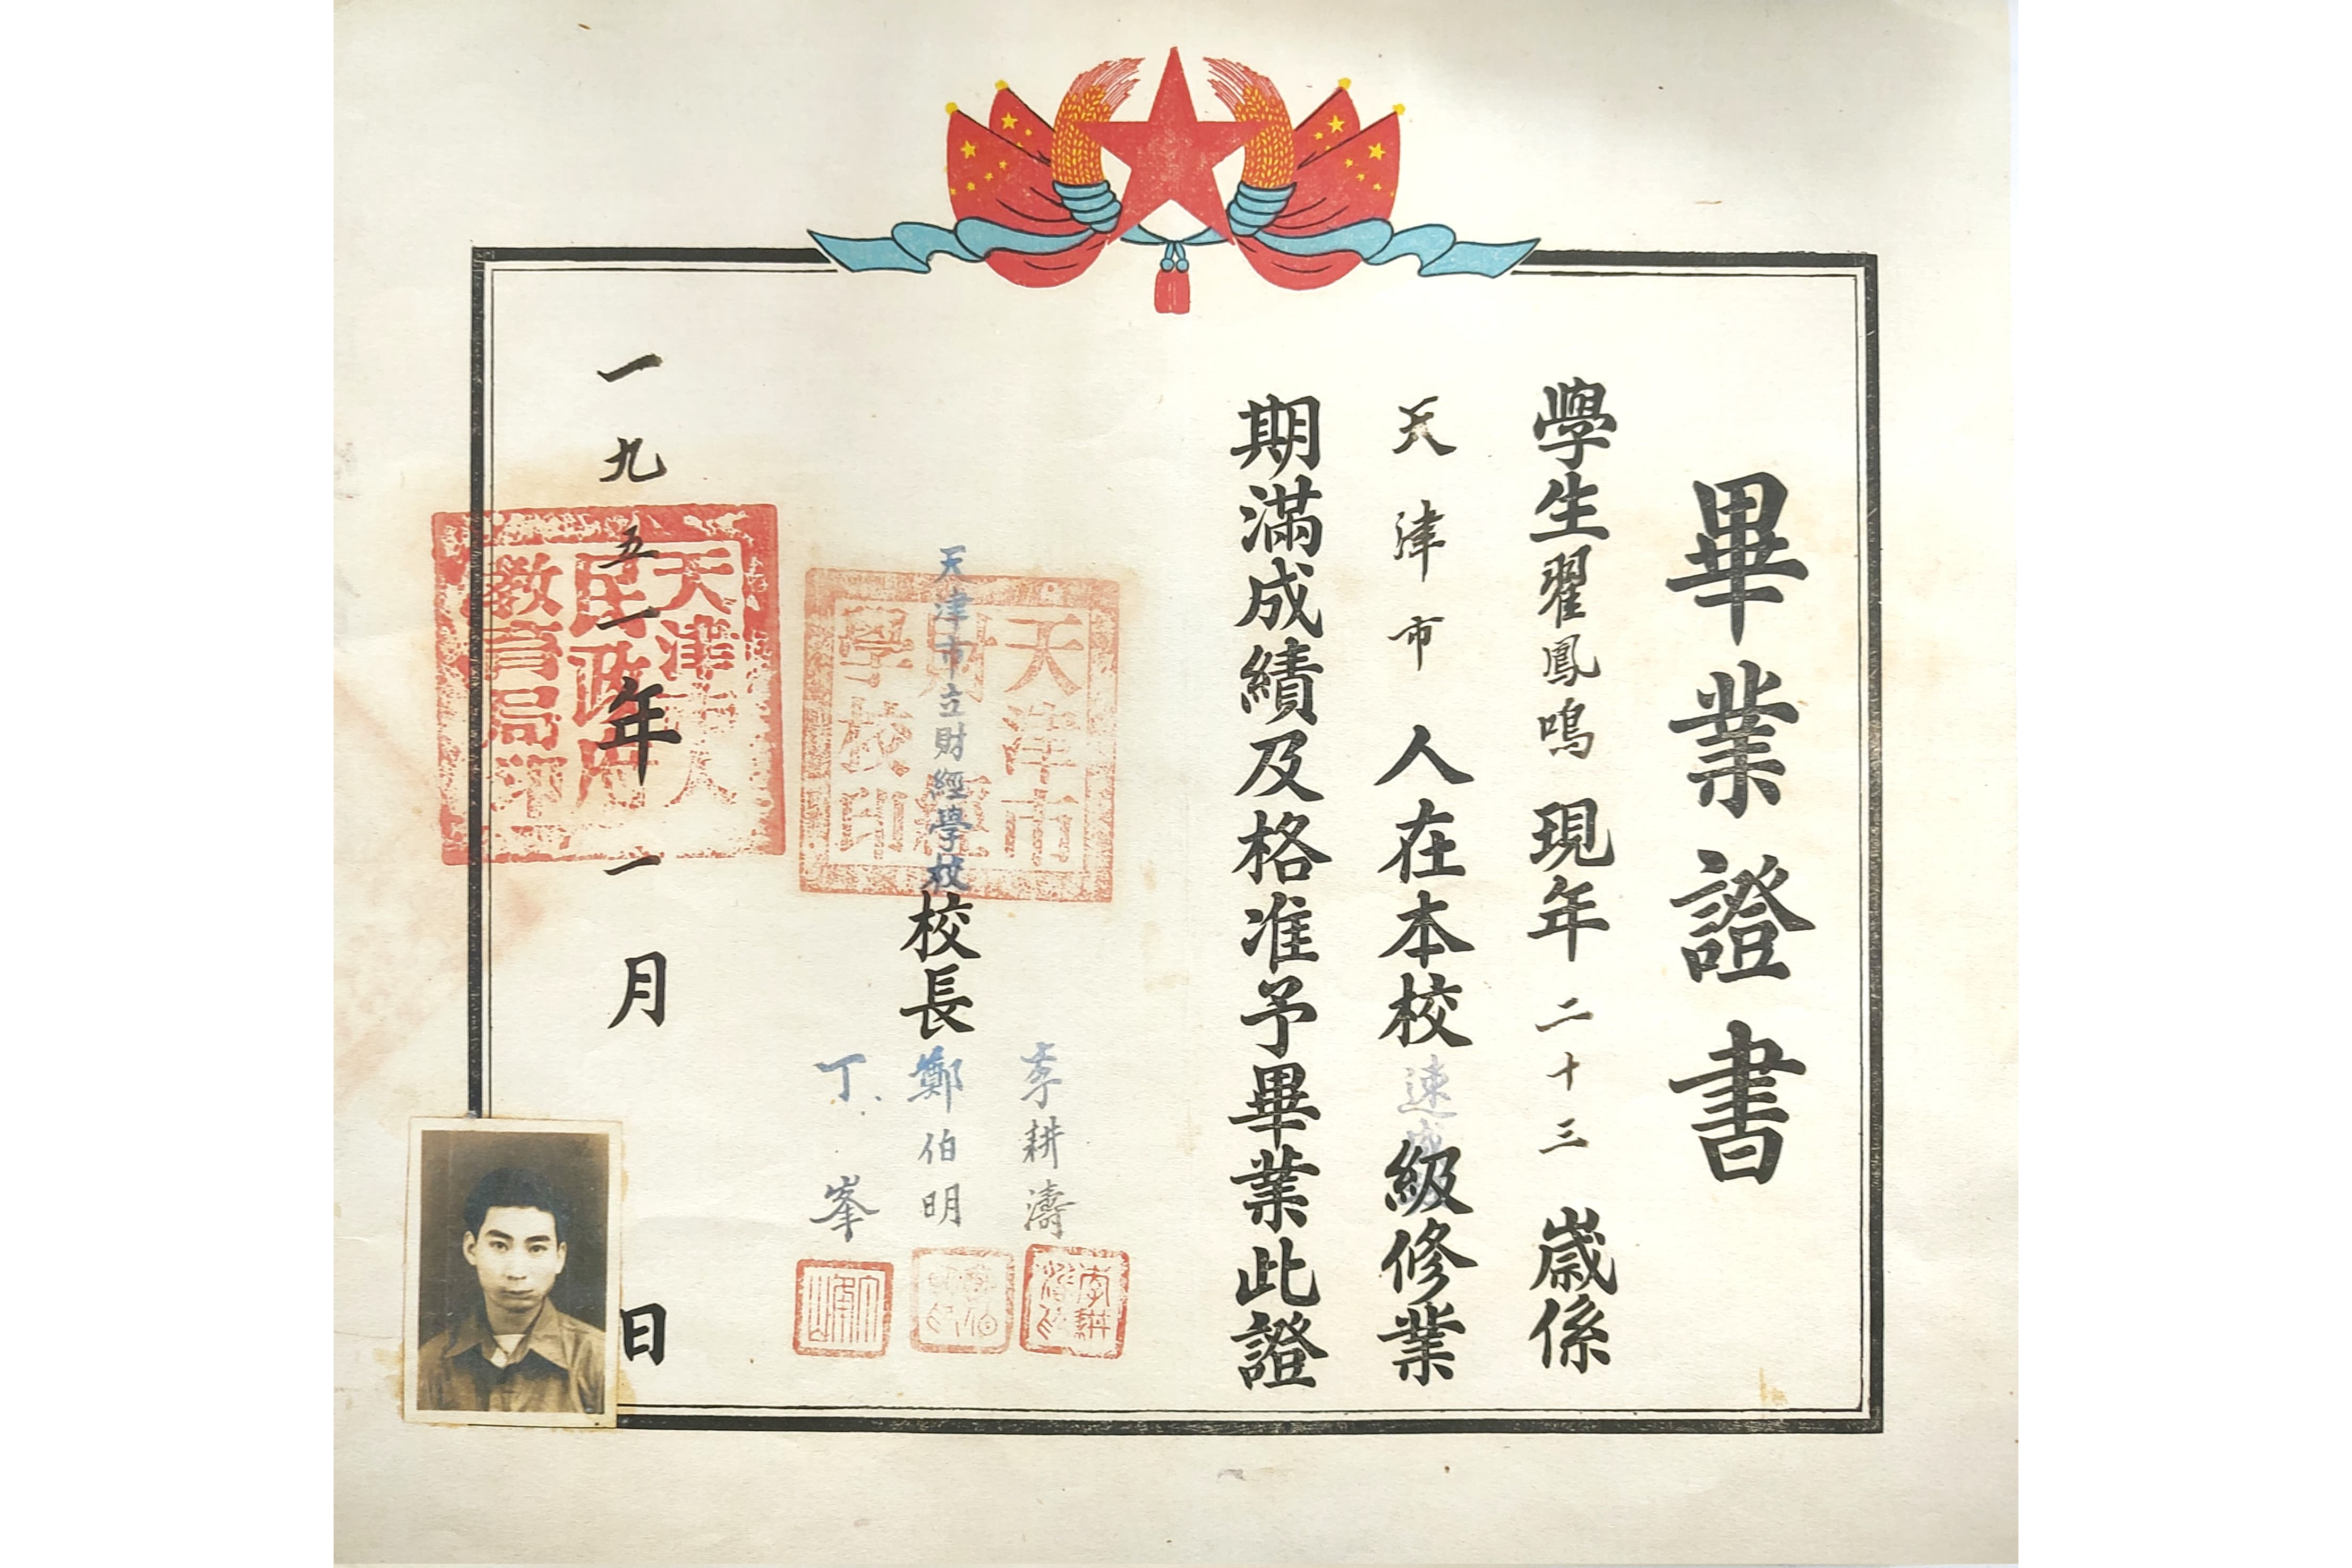 畢業證書
學生翟鳳鳴現年二十三歲係
天津市人在本校速成級修業
期滿成績及格准予畢業此證
天津市立財經學校校長
李耕濤
鄭伯明
丁峯
天津市財經學校印
李耕濤印
一九五一年一月 日
天津市人民政府教育局印